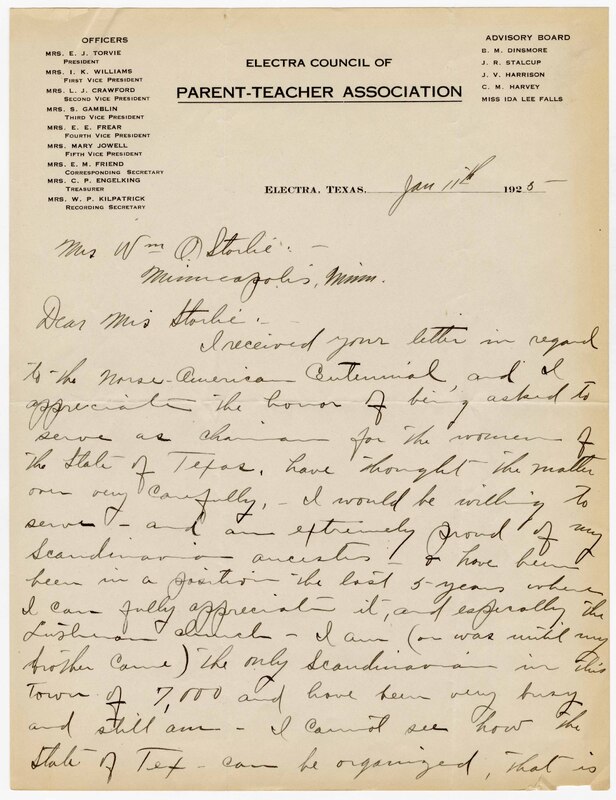 OFFICERS
MRS. E. J. TORVIE
PRESIDENT
MRS. I. K. WILLIAMS
FIRST VICE PRESIDENT
MRS. L. J. CRAWFORD
SECOND VICE PRESIDENT
MRS. S. GAMBLIN
THIRD VICE PRESIDENT
MRS. E. E. FREAR
FOURTH VICE PRESIDENT
MRS. MARY JOWELL
FIFTH VICE PRESIDENT
MRS. E. M. FRIEND
CORRESPONDING SECRETARY
MRS. C. P. ENGELKING
TREASURER
MRS. W. P. KILPATRICK
RECORDING SECRETARY
ELECTRA COUNCIL OF
PARENT-TEACHER ASSOCIATION
ADVISORY BOARD
B. M. DINSMORE
J. R. STALCUP
J. V. HARRISON
C. M. HARVEY
MISS IDA LEE FALLS
ELECTRA, TEXAS. Jan 11th 1925
Mrs Wm O. Storlie: -
Minneapolis, Minn.
Dear Mrs Storlie: -
I received your letter in regard
to the Norse-American Centennial, and I
appreciate the honor of being asked to
serve as chairman for the women of
the State of Texas, have thought the matter
over very carefully, - I would be willing to
serve - and am extremely proud of my
Scandinavian ancestors - & have been
been in a position the last 5 years where
I can fully appreciate it, and especially the
Lutheran church - I am (or was until my
brother came) the only Scandinavian in this
town of 7,000 and have been very busy
and still am - I cannot see how the
State of Tex - can be organized, that is